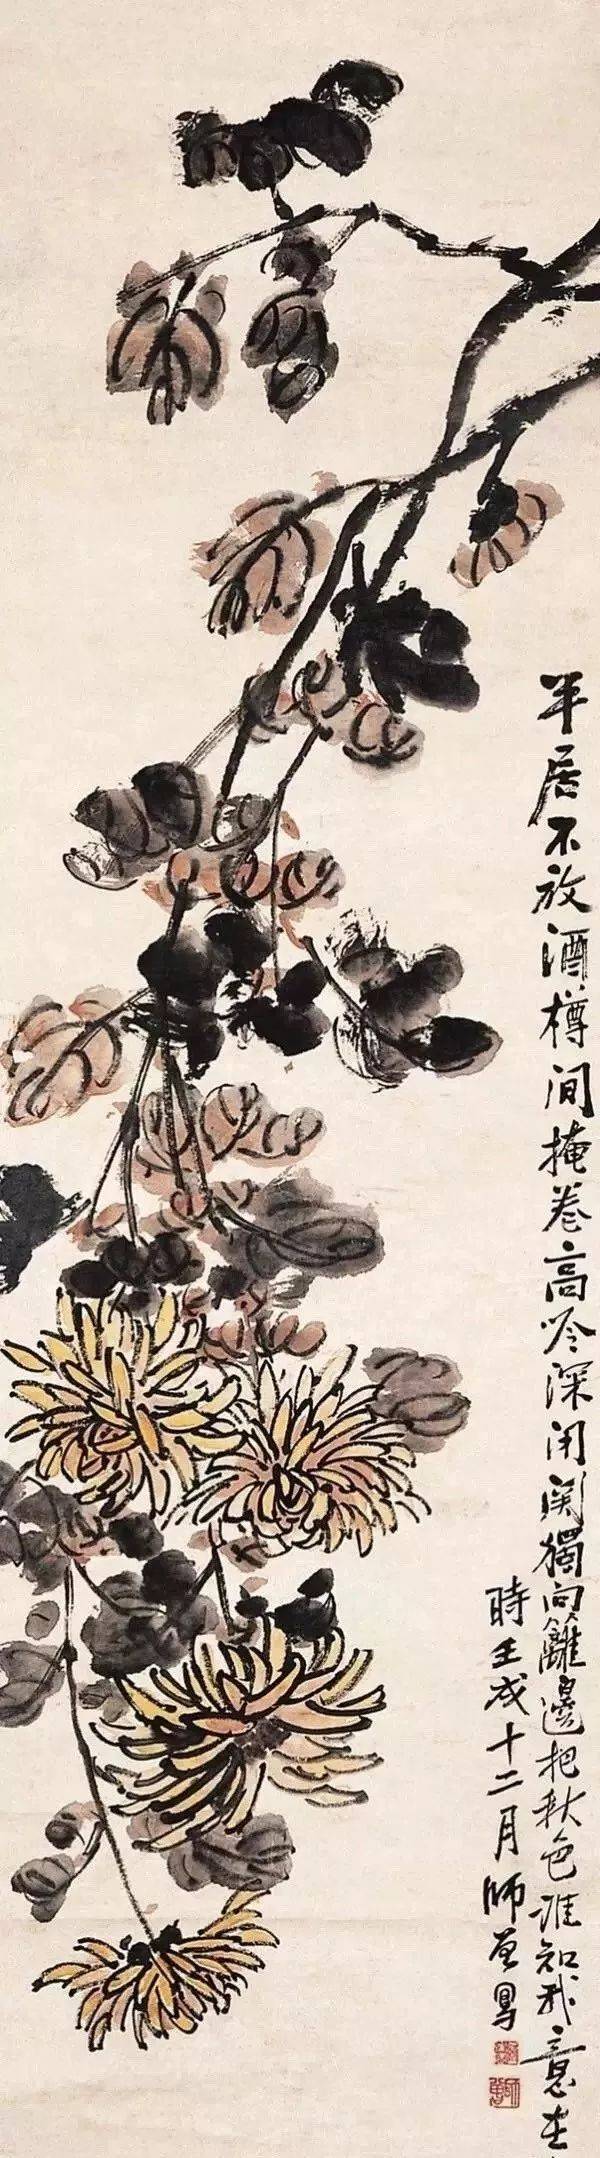 平居不放酒樽間掩卷高吟深閉關獨向籬邊把秋色誰知我意在
時壬戌十二月師曾寫